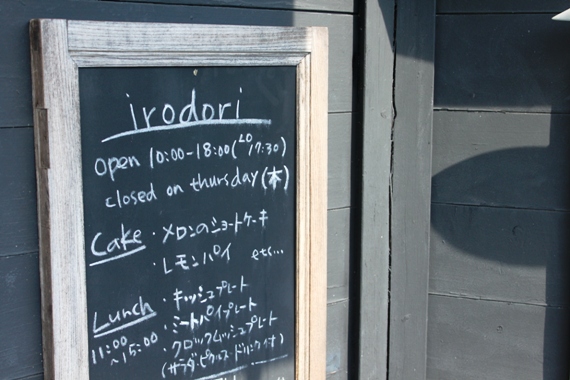 irodori
open 10:00-18:00(LO 17:30)
closed on thursday(木)
Cake ・メロンのショートケーキ
・レモンパイ etc...
Lunch ・キッシュプレート
11:00~15:00 ・ミートパイプレート
・クロックムッシュプレート
(サラダ・ピクルス・ドリンク付)